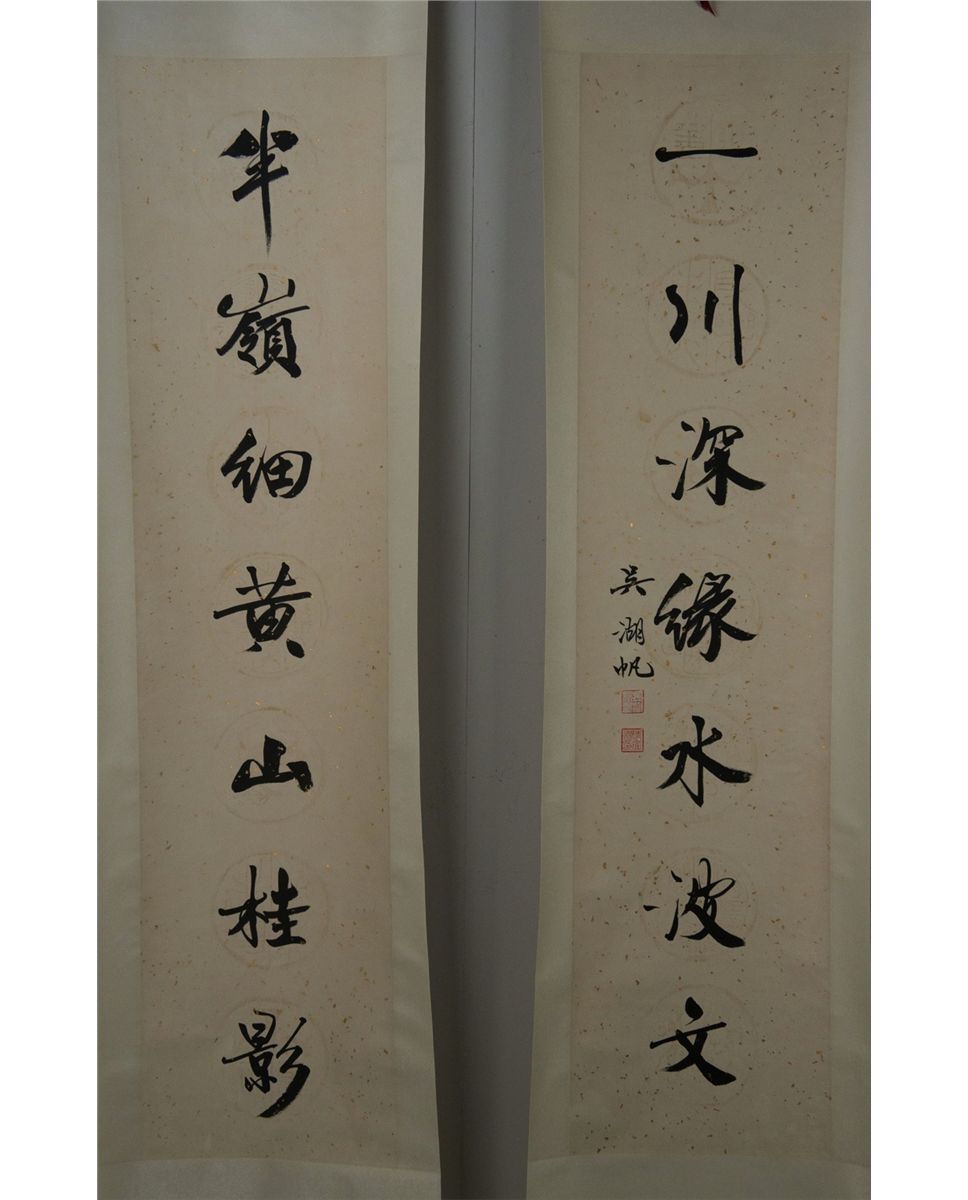 一川深緣水波文
吳湖帆
半嶺細黄山桂影